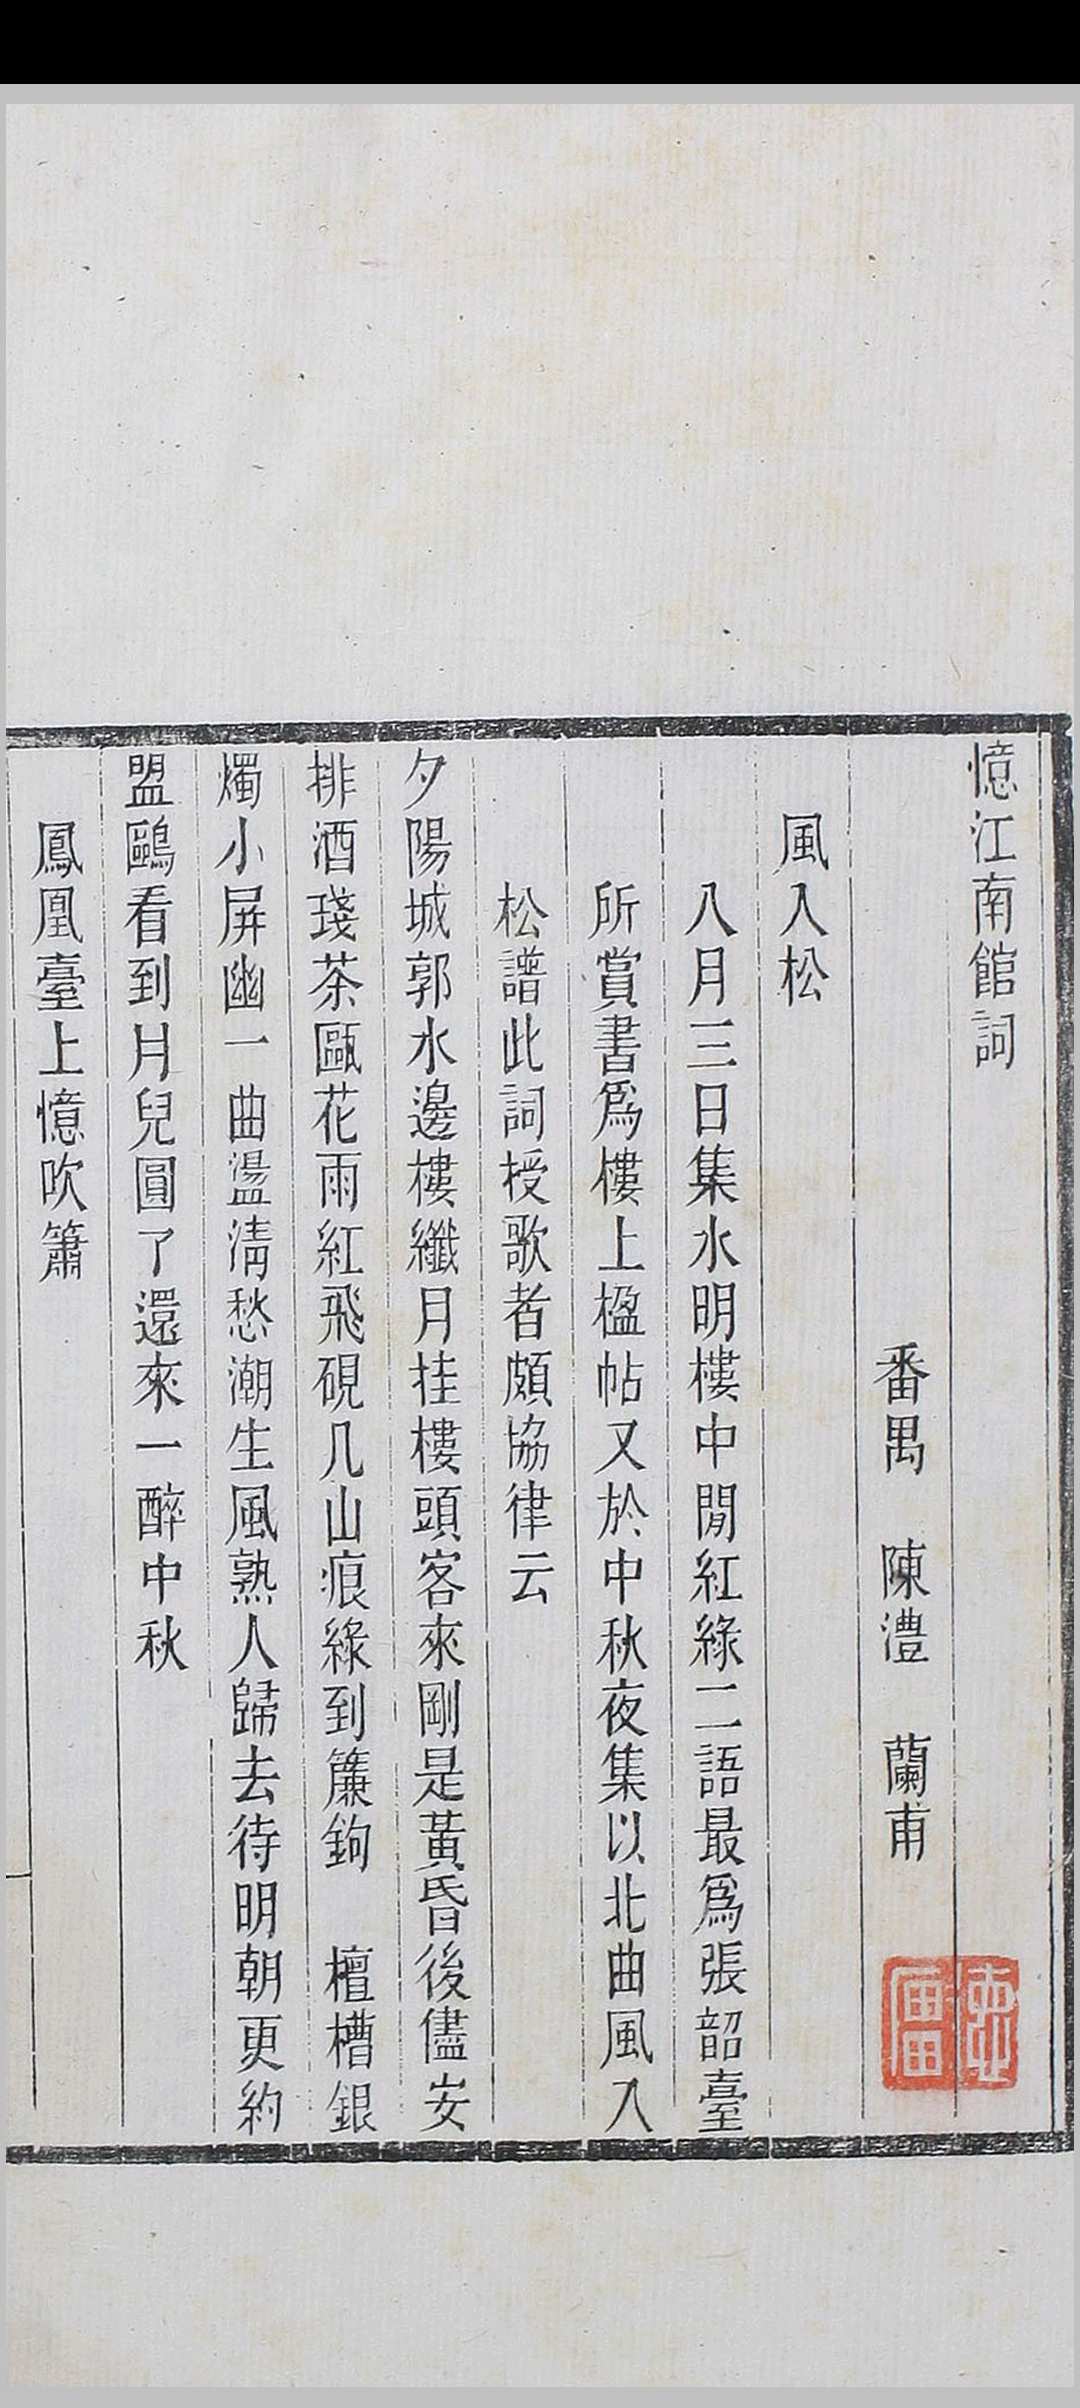 憶江南館詞
番禺　陳澧　蘭甫
風入松
八月三日集水明樓中閒紅綠二語最爲張韶臺
所賞書爲樓上楹帖又於中秋夜集以北曲風入
松譜此詞授歌者頗協律云
夕陽城郭水邊樓纖月挂樓頭客來剛是黃昏後儘安
排酒琖茶甌花雨紅飛硯几山痕綠到簾鉤　檀槽銀
燭小屏幽一曲盪清愁潮生風熟人歸去待明朝更約
盟鷗看到月兒圓了還來一醉中秋
鳳凰臺上憶吹簫